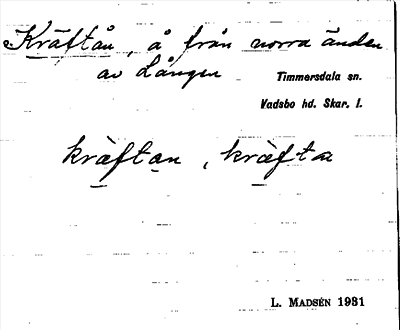 Kräftån, å från norra änden
av Lången
Timmersdala sn.
Vadsbo hd. Skar. l.
kràftan, kràfta
L. MADSÉN 1931